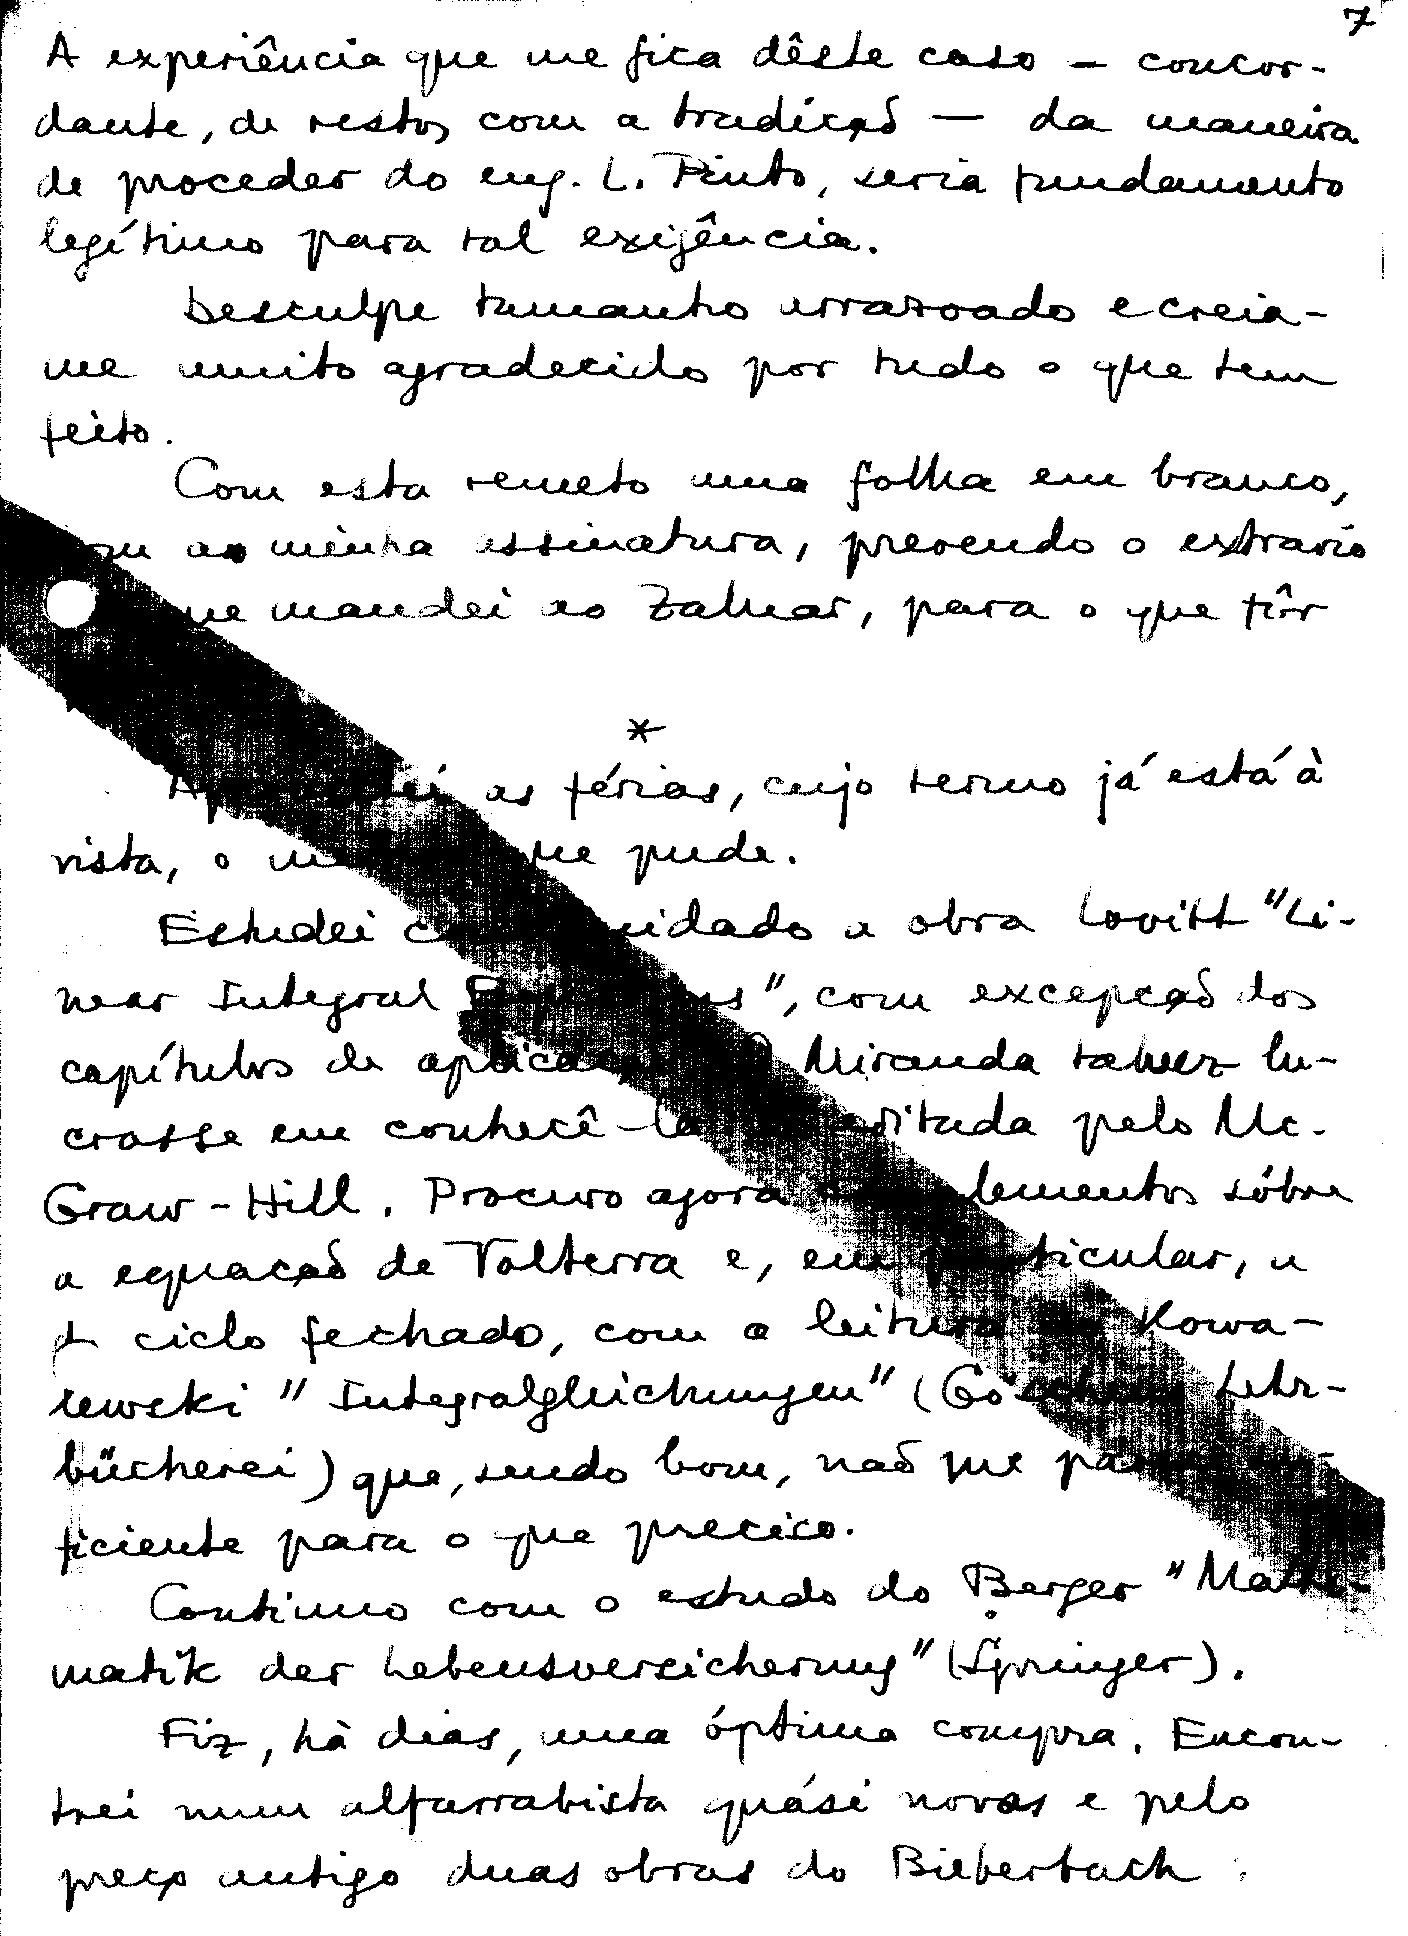 7
A experiência que me fica dêste caso — concor-
dante, de resto, com a tradição — da maneira
de proceder do eng. L. Pinto, seria fundamento
legítimo para tal exigência.
Desculpe tamanho arrazoado e creia-
me muito agradecido por tudo o que tem
feito.
Com esta remeto uma folha em branco,
com a minha assinatura, prevendo o extravio
que mandei ao Zaluar, para o que fôr
*
Aproveitei as férias, cujo termo já está à
vista, o que pude.
Estudei cuidado a obra Lovitt "Li-
near Integral Equations", com excepção dos
capítulos de aplicação Miranda talvez lu-
crasse em conhecê-la editada pelo Mc.
Graw-Hill. Procuro agora elementos sôbre
a equação de Volterra e, em particular, o
ciclo fechado, com a leitura Kowa-
lewski "Integralgleichungen" (Göschens Lehr-
bücherei) que, sendo bom, não me parece su-
ficiente para o que preciso.
Continuo com o estudo do Berger "Mathe-
matik der Lebensversicherung" (Springer).
Fiz, há dias, uma óptima compra. Encon-
trei num alfarrabista quási novas e pelo
preço antigo duas obras do Bieberbach: